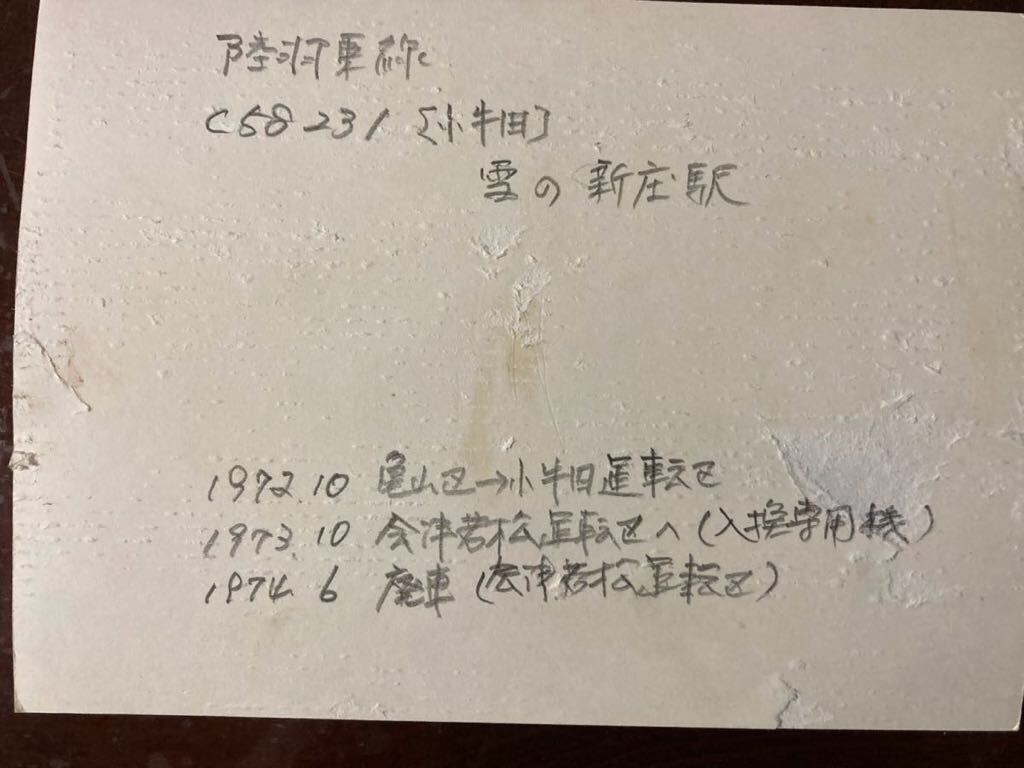 陸羽東線
C58 231 [小牛田]
雪の 新庄駅
1972.10 亀山区→小牛田運転区
1973.10 会津若松運転区へ(入換専用機)
1974.6 廃車(会津若松運転区)